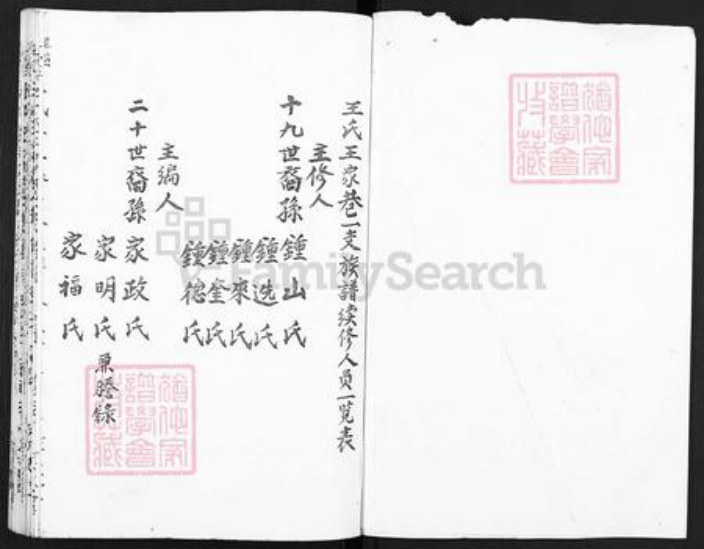 王氏王家巷二支族譜续修人員一览表
主修人
十九世裔孫
鍾山氏
鍾选氏
鍾來氏
鍾奎氏
鍾德氏
主编人
二十世裔孫
家政氏
家明氏 兼謄錄
家福氏
FamilySearch
譜學會
譜學會